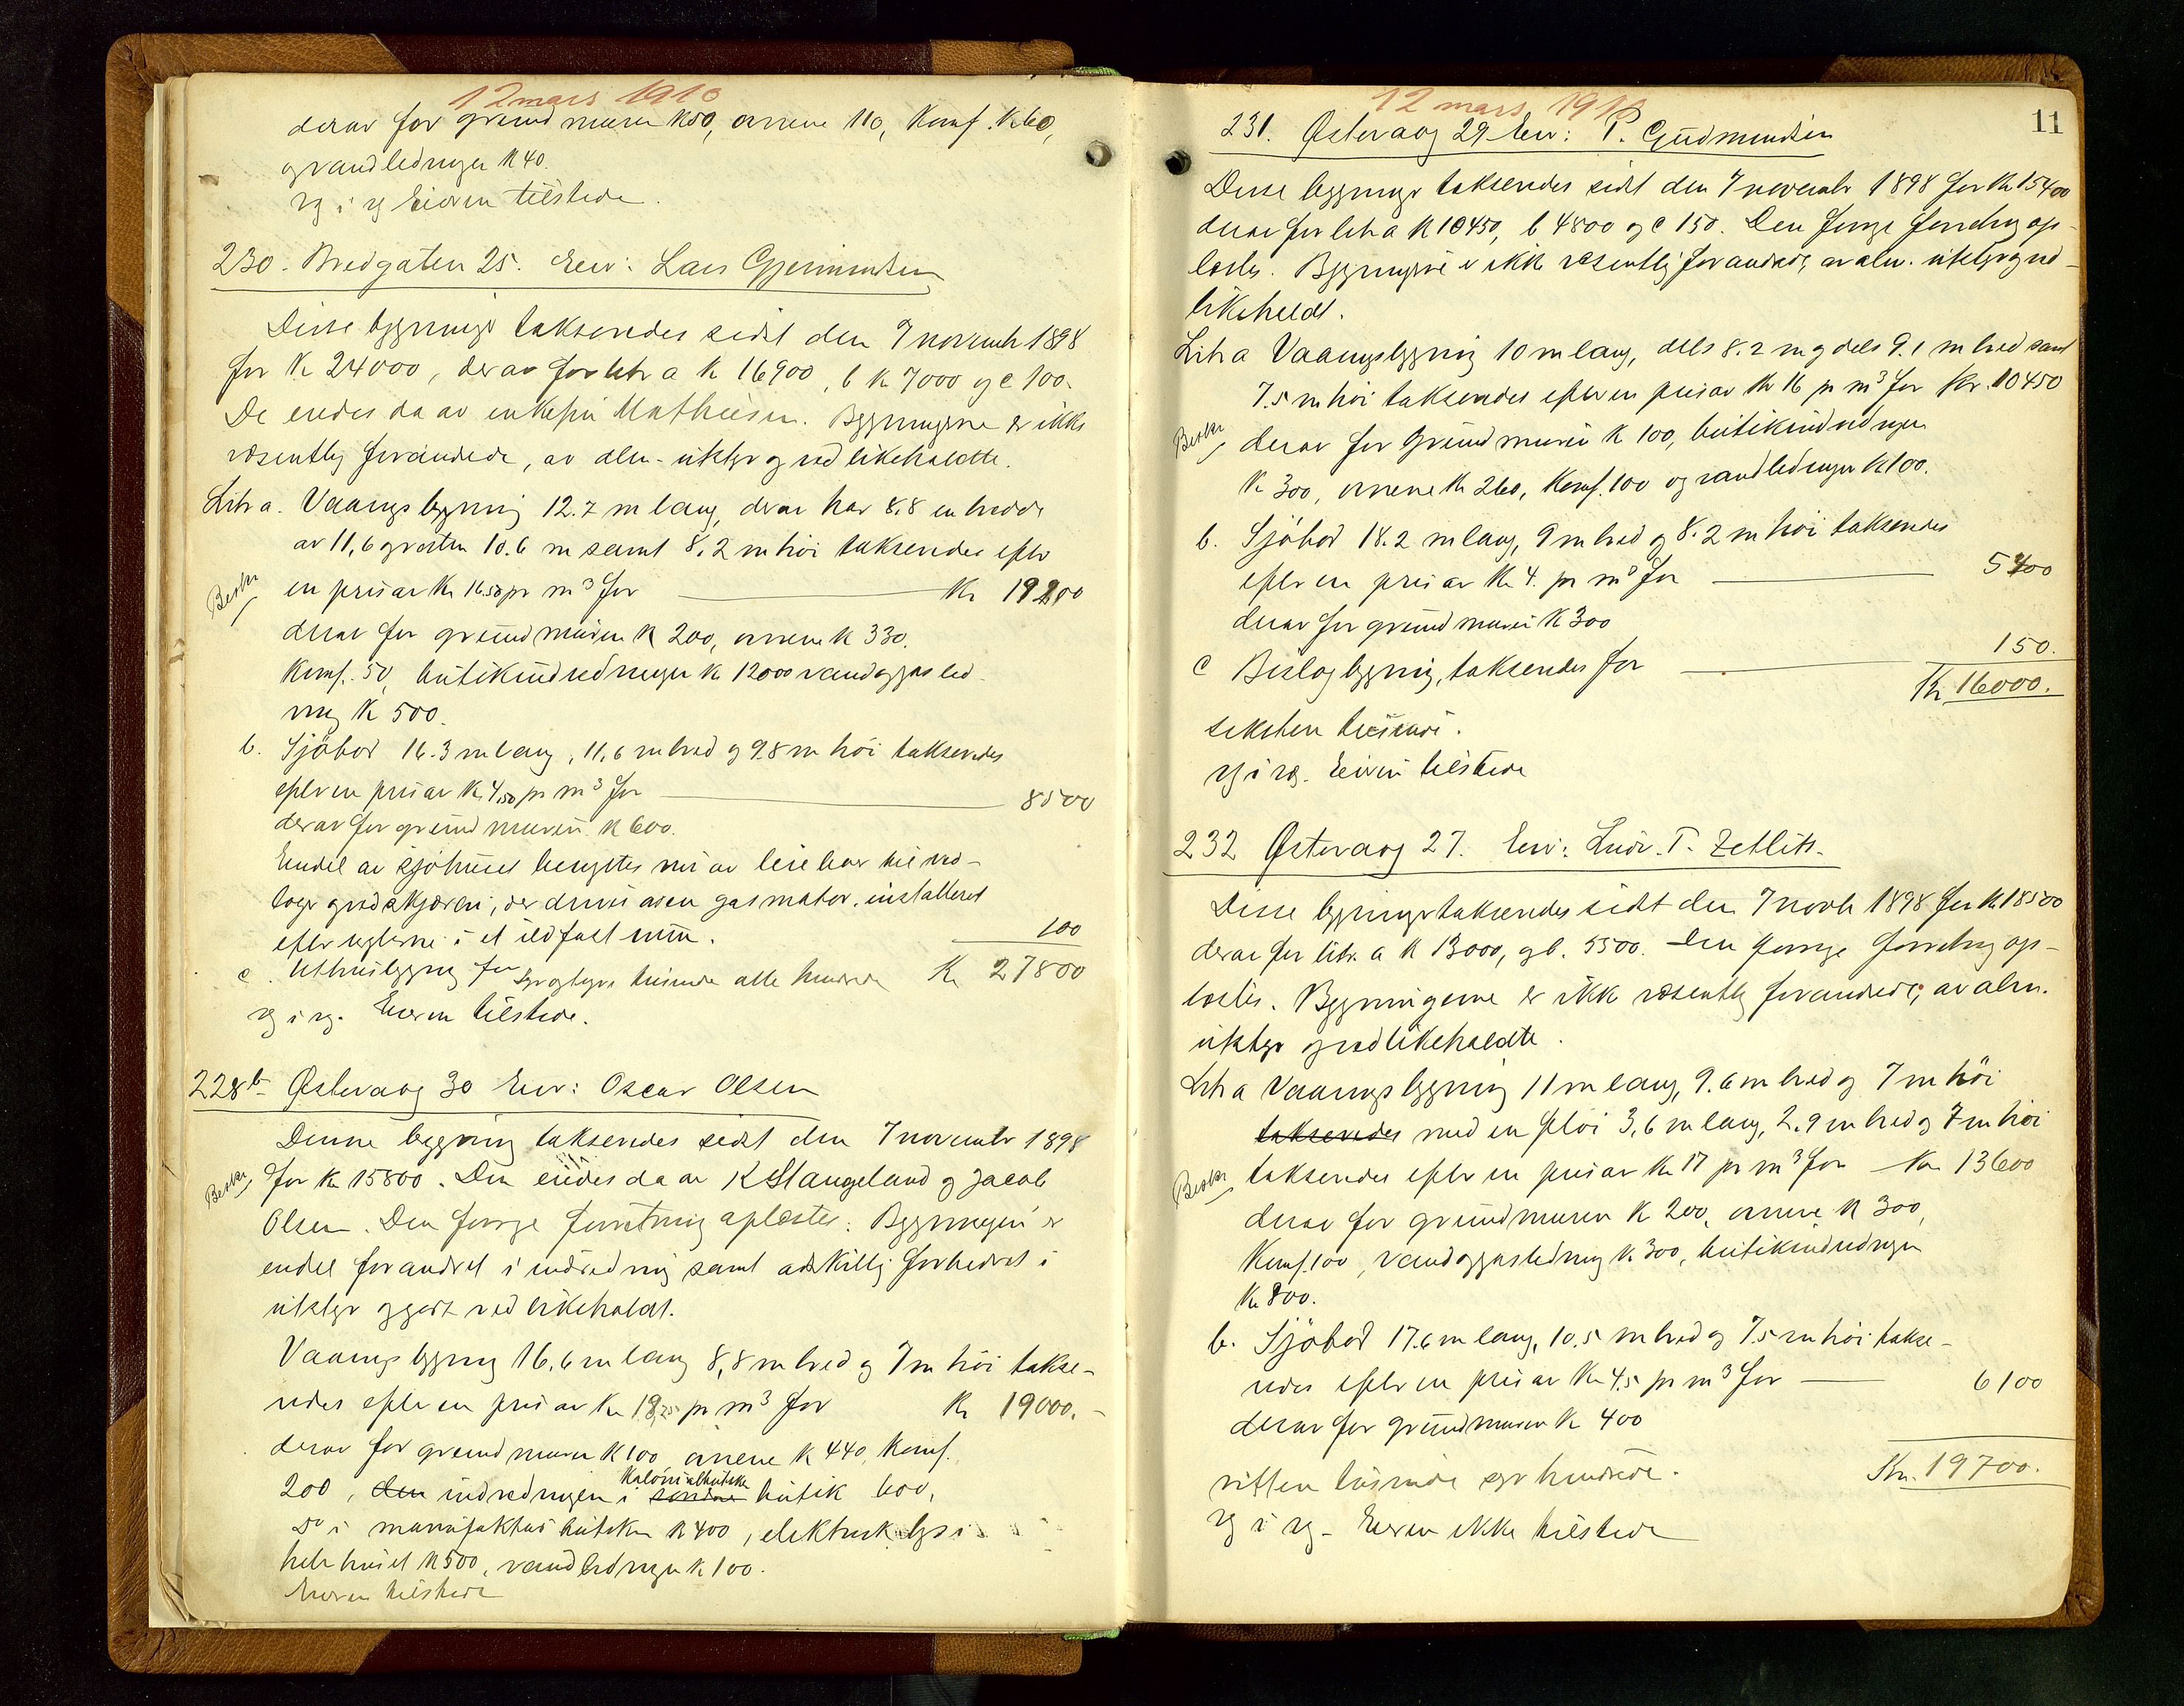 12 mars 1910
derav for grundmuren K 50, ovnene 110, Komf. K 60,
og vandledningen K 40.
rg i rg Eieren tilstede.
230. Bredgaten 25. Eier: Lars Gjermundsen
Disse bygninger takseredes sidst den 7 novembr 1898
for K 24000, derav for litr a K 16900, b K 7000 og c 100.
De eiedes da av enkefru Mathiesen. Bygningerne er ikke
væsentlig forandrede, av alm. utstyr og vedlikeholdte.
Litr a. Vaaningsbygning 12.7 m lang, derav har 8,8 en bredde
av 11,6 og resten 10.6 m samt 8.2 m höi takseredes efter
Beskr en pris av Kr 16.50 pr m³ for Kr 19200
derav for grundmuren K 200, ovnene K 330.
Komf. 50, butikindredningen K 1200 og vand og gasled-
ning K 500.
b. Sjöbod 16.3 m lang, 11,6 m bred og 9.8 m höi takseredes
efter en pris av K 4,50 pr m³ for 8500
derav for grundmuren K 600.
Endel av sjöhuset benyttes nu av leieboer til
installeret
efter reglerne i et ildfast rum. 100
c. Uthusbygning for Kr 27800
syv og tyve tusinde otte hundrede
rg i rg. Eieren tilstede.
228b Østervaag 30 Eier: Oscar Olsen
Denne bygning takseredes sidst den 7 novembr 1898
Beskr for Kr 15800. Den eiedes da av K Stangeland og Jacob
Olsen. Den forrige forretning oplæstes. Bygningen er
endel forandret i indredning samt adskillig forbedret i
utstyr og godt vedlikeholdt.
Vaaningsbygning 16,6 m lang 8,8 m bred og 7 m höi takse-
redes efter en pris av Kr 18,25 pr m³ for Kr 19000.-
derav for grundmuren K 100 ovnene K 440, Komf.
Kolonialbutik
200, den indredningen i søndre butik 600,
Do i manufaktur butiken K 400, elektrisk lys i
hele huset K 500, vandledningen K 100.
Eieren tilstede
12 mars 1910
11
231. Østervaag 29 Eier: P. Gudmundsen
Disse bygninger takseredes sidst den 7 novembr 1898 for Kr 15400
derav for litr a K 10450, b 4800 og c 150. Den forrige forretning op-
læstes. Bygningerne er ikke væsentlig forandrede, av alm. utstyr og ved-
likeholdt.
Litr a Vaaningsbygning 10 m lang, dels 8.2 m og dels 9.1 m bred samt
7.5 m höi takseredes efter en pris av Kr 16 pr m³ for Kr. 10450
Beskr derav for Grundmuren K 100, butikindredningen
K 300, ovnene K 260, Komf. 100 og vandledningen K 100.
b. Sjöbod 18.2 m lang, 9 m bred og 8.2 m höi takseredes
efter en pris av Kr 4. pr m³ for 5400
derav for grundmuren K 300
c Bislagbygning, takseredes for 150.
Kr 16000.
seksten tusinde.
rg i rg. Eieren tilstede
232 Østervaag 27. Eier: Ludv. T. Zetlitz.
Disse bygninger takseredes sidst den 7 novbr 1898 for Kr 18500
derav for litr. a K 13000, og b. 5500. Den forrige forretning op-
læstes. Bygningerne er ikke væsentlig forandrede, av alm.
utstyr og vedlikeholdte.
Litr a Vaaningsbygning 11 m lang, 9.6 m bred og 7 m höi
takseredes med en flöi 3,6 m lang, 2.9 m bred og 7 m höi
Beskr takseredes efter en pris av Kr 17 pr m³ for Kr 13600
derav for grundmuren K 200, ovnene K 300,
Komf. 100, vand og gasledning K 300, butikindredningen
Kr 800.
b. Sjöbod 17.6 m lang, 10.5 m bred og 7.5 m höi takse-
redes efter en pris av Kr 4.5 pr m³ for 6100
derav for grundmuren K 400
Kr. 19700.
nitten tusinde syv hundrede.
rg i rg - Eieren ikke tilstede